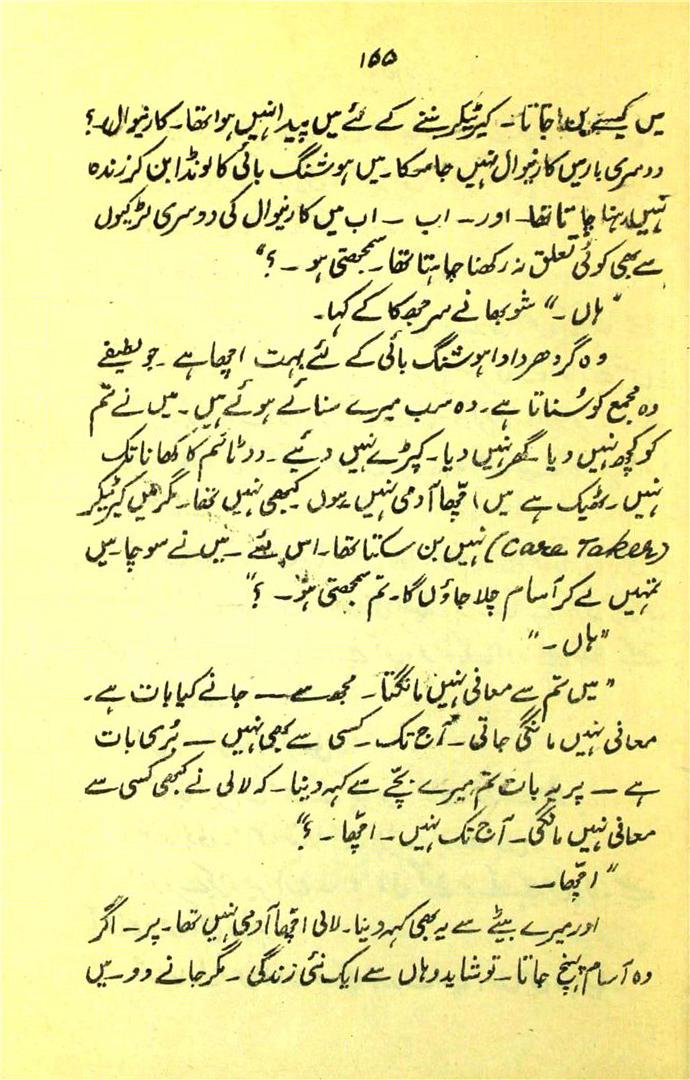 ۱۵۵
میں کیسے بن جاتا۔ کیرٹیکر بننے کے لئے میں پیدا نہیں ہوا تھا۔ کارنیوال۔؟
دوسری بار میں کارنیوال نہیں جا سکا۔ میں ہوشنگ بائی کا لونڈا بن کر زندہ
نہیں رہنا چاہتا تھا۔ اور۔ اب ۔ اب میں کارنیوال کی دوسری لڑکیوں
سے بھی کوئی تعلق نہ رکھنا چاہتا تھا۔ سمجھتی ہو ۔ ؟"
"ہاں ۔" شوبھا نے سر جھکا کے کہا۔
وہ گردھر دادا ہوشنگ بائی کے لئے بہت اچھا ہے ۔ جو لطیفے
وہ مجمع کو سُناتا ہے۔ وہ سب میرے سنائے ہوئے ہیں۔ میں نے تم
کو کچھ نہیں دیا۔ گھر نہیں دیا۔ کپڑے نہیں دئیے ۔ دو ٹائم کا کھانا تک
نہیں۔ ٹھیک ہے میں اچھا آدمی نہیں ہوں کبھی نہیں تھا۔ مگر میں کیرٹیکر
(Care Taker) نہیں بن سکتا تھا۔ اس لئے ۔ میں نے سوچا۔ میں
تمہیں لے کر آسام چلا جاؤں گا۔ تم سمجھتی ہو۔ ؟"
"ہاں ۔"
"میں تم سے معافی نہیں مانگتا۔ مجھ سے — جانے کیا بات ہے۔
معافی نہیں مانگی جاتی ۔ آج تک ۔ کسی سے بھی نہیں — بُری بات
ہے — پر یہ بات تم میرے بچے سے کہہ دینا۔ کہ لالی نے کبھی کسی سے
معافی نہیں مانگی۔ آج تک نہیں۔ اچھا۔ ؟"
"اچھا۔
اور میرے بیٹے سے یہ بھی کہہ دینا۔ لالی اچھا آدمی نہیں تھا۔ پر۔ اگر
وہ آسام پہنچ جاتا۔ تو شاید وہاں سے ایک نئی زندگی ۔ مگر جانے دو۔ میں